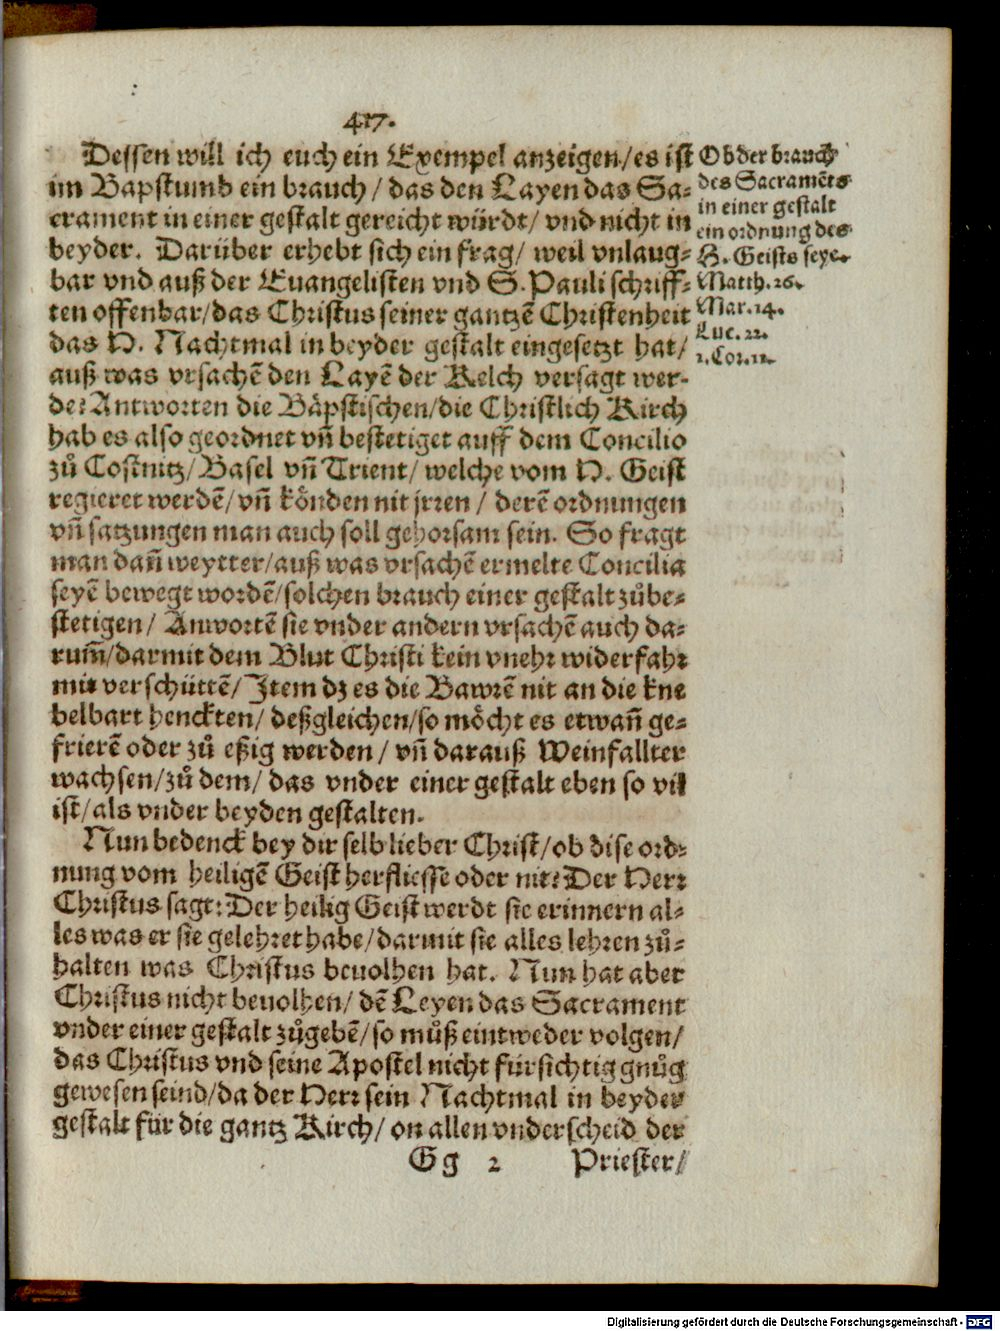 417.
Dessen will ich euch ein Exempel anzeigen/es ist
im Bapstumb ein brauch/ das den Layen das Sa-
crament in einer gestalt gereicht würdt/ vnd nicht in
beyder. Darüber erhebt sich ein frag/ weil vnlaug-
bar vnd auß der Euangelisten vnd S. Pauli schriff-
ten offenbar/das Christus seiner gantzē Christenheit
das H. Nachtmal in beyder gestalt eingesetzt hat/
auß was vrsachē den Layē der Kelch versagt wer-
de? Antworten die Bäpstischen/die Christlich Kirch
hab es also geordnet vn̄ bestetiget auff dem Concilio
zů Costnitz/Basel vn̄ Trient/ welche vom H. Geist
regieret werdē/vn̄ könden nit jrren/ derē ordnungen
vn̄ satzungen man auch soll gehorsam sein. So fragt
man dan̄ weytter/auß was vrsachē ermelte Concilia
seyē bewegt wordē/solchen brauch einer gestalt zůbe-
stetigen/ Antwortē sie vnder andern vrsachē auch da-
rum̄/darmit dem Blut Christi kein vnehr widerfahr
mit verschüttē/Item dz es die Bawrē nit an die kne
belbart henckten/ deßgleichen/so möcht es etwan̄ ge-
frierē oder zů eßig werden/ vn̄ darauß Weinfallter
wachsen/zů dem/ das vnder einer gestalt eben so vil
ist/als vnder beyden gestalten.
Nun bedenck bey dir selb lieber Christ/ob dise ord-
nung vom heiligē Geist herfliesse oder nit? Der Herr
Christus sagt: Der heilig Geist werdt sie erinnern al-
les was er sie gelehret habe/darmit sie alles lehren zů-
halten was Christus beuolhen hat. Nun hat aber
Christus nicht beuolhen/ dē Leyen das Sacrament
vnder einer gestalt zůgebē/so můß eintweder volgen/
das Christus vnd seine Apostel nicht fürsichtig gnůg
gewesen seind/da der Herr sein Nachtmal in beyder
gestalt für die gantz Kirch/ on allen vnderscheid der
Gg 2 Priester/
Ob der brauch
des Sacramēts
in einer gestalt
ein ordnung des
H. Geists seye.
Matth. 26.
Mar. 14.
Luc. 22.
1. Cor. 11.
Digitalisierung gefördert durch die Deutsche Forschungsgemeinschaft - DFG